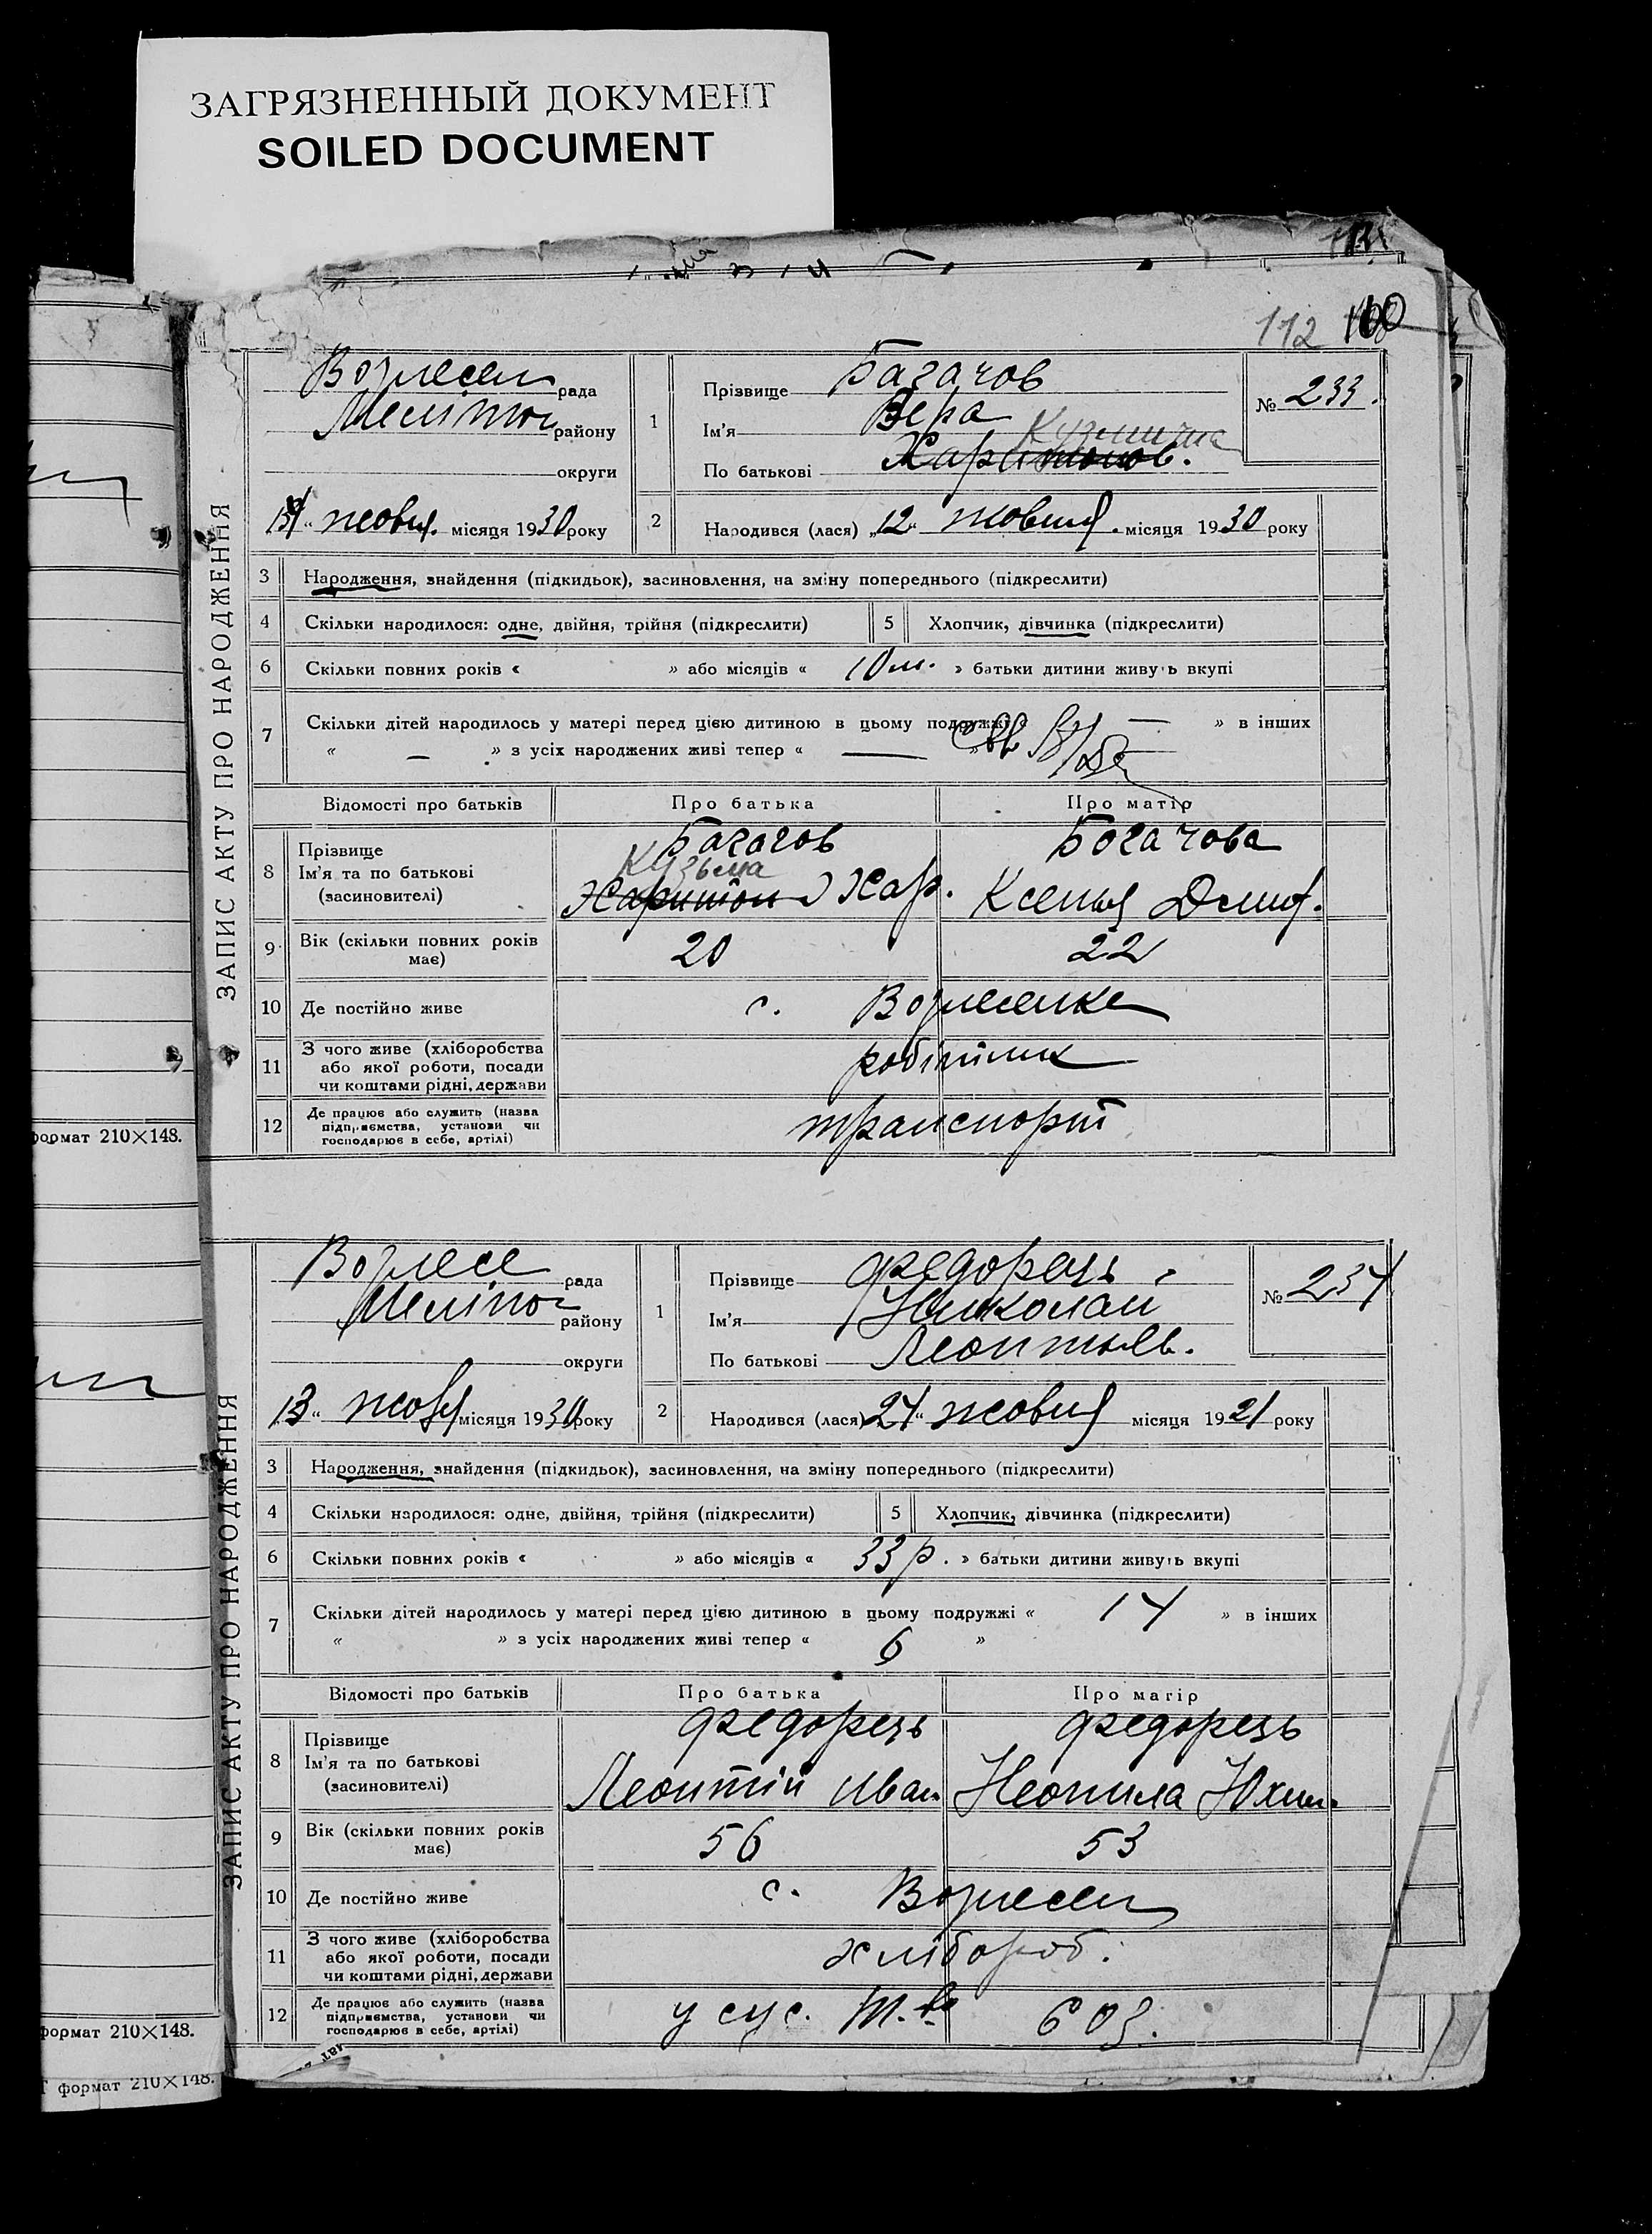 ЗАГРЯЗНЕННЫЙ ДОКУМЕНТ
SOILED DOCUMENT
112 100
ЗАПИС АКТУ ПРО НАРОДЖЕННЯ
Вознесен рада
Меліто району
округи
жовтя. місяця 1930 року
1
Прізвище Багачов
Ім'я Вера
Кузминична
По батькові Харитонов.
№ 233.
2
Народився (лася) „12“ жовтня. місяця 1930 року
3 Народження, знайдення (підкидьок), засиновлення, на зміну попереднього (підкреслити)
4 Скільки народилося: одне, двійня, трійня (підкреслити) 5 Хлопчик, дівчинка (підкреслити)
6 Скільки повних років « » або місяців « 10 м. » батьки дитини живуть вкупі
7 Скільки дітей народилось у матері перед цією дитиною в цьому подружжі « — » в інших
« — » з усіх народжених живі тепер « — »
Відомості про батьків Про батька Про матір
8 Прізвище
Ім'я та по батькові
(засиновителі)
Багачов
Кузьма
Харитон Хар.
Богачова
Ксенья Дмит.
9 Вік (скільки повних років має) 20 22
10 Де постійно живе с. Вознесенке
11 З чого живе (хліборобства або якої роботи, посади чи коштами рідні, держави робітник
12 Де працює або служить (назва підприємства, установи чи господарює в себе, артілі) транспорт
формат 210×148.
ЗАПИС АКТУ ПРО НАРОДЖЕННЯ
Вознесе рада
Меліто району
округи
13“ жовтя місяця 1930 року
1
Прізвище Федорець
Ім'я Николай
По батькові Леонтьев.
№ 234
2
Народився (лася) 24“ жовтня місяця 1921 року
3 Народження, знайдення (підкидьок), засиновлення, на зміну попереднього (підкреслити)
4 Скільки народилося: одне, двійня, трійня (підкреслити) 5 Хлопчик, дівчинка (підкреслити)
6 Скільки повних років « » або місяців « 33 р. » батьки дитини живуть вкупі
7 Скільки дітей народилось у матері перед цією дитиною в цьому подружжі « 14 » в інших
« » з усіх народжених живі тепер « 6 »
Відомості про батьків Про батька Про матір
8 Прізвище
Ім'я та по батькові
(засиновителі)
Федорець
Леонтій Иван.
Федорець
Неонила Юхим.
9 Вік (скільки повних років має) 56 53
10 Де постійно живе с. Вознесен
11 З чого живе (хліборобства або якої роботи, посади чи коштами рідні, держави хлібороб.
12 Де працює або служить (назва підприємства, установи чи господарює в себе, артілі) у сус. т.-ве
формат 210×148.
формат 210×148.